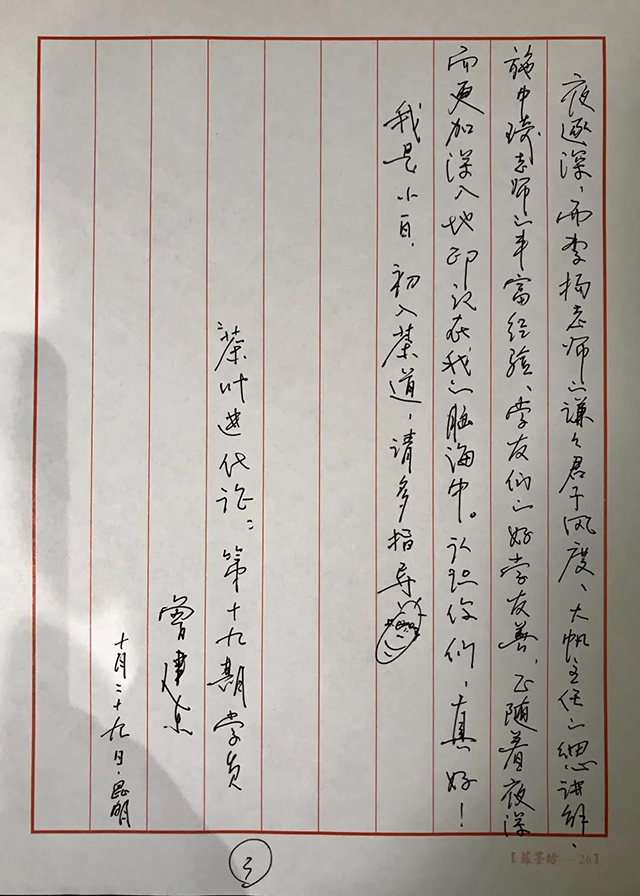 夜逐深，而李杨老师的谦谦君子风度、大帆主任的细思讲解、
施中琦老师的丰富经验、学友们的好学友善，正随着夜深
而更加深入地印记在我的脑海中。认识你们，真好！
我是小白，初入茶道，请多指导
茶叶进化论：第十九期学员
曾建
十月二十九日·昆明
3
【蘇墨坊 —26】